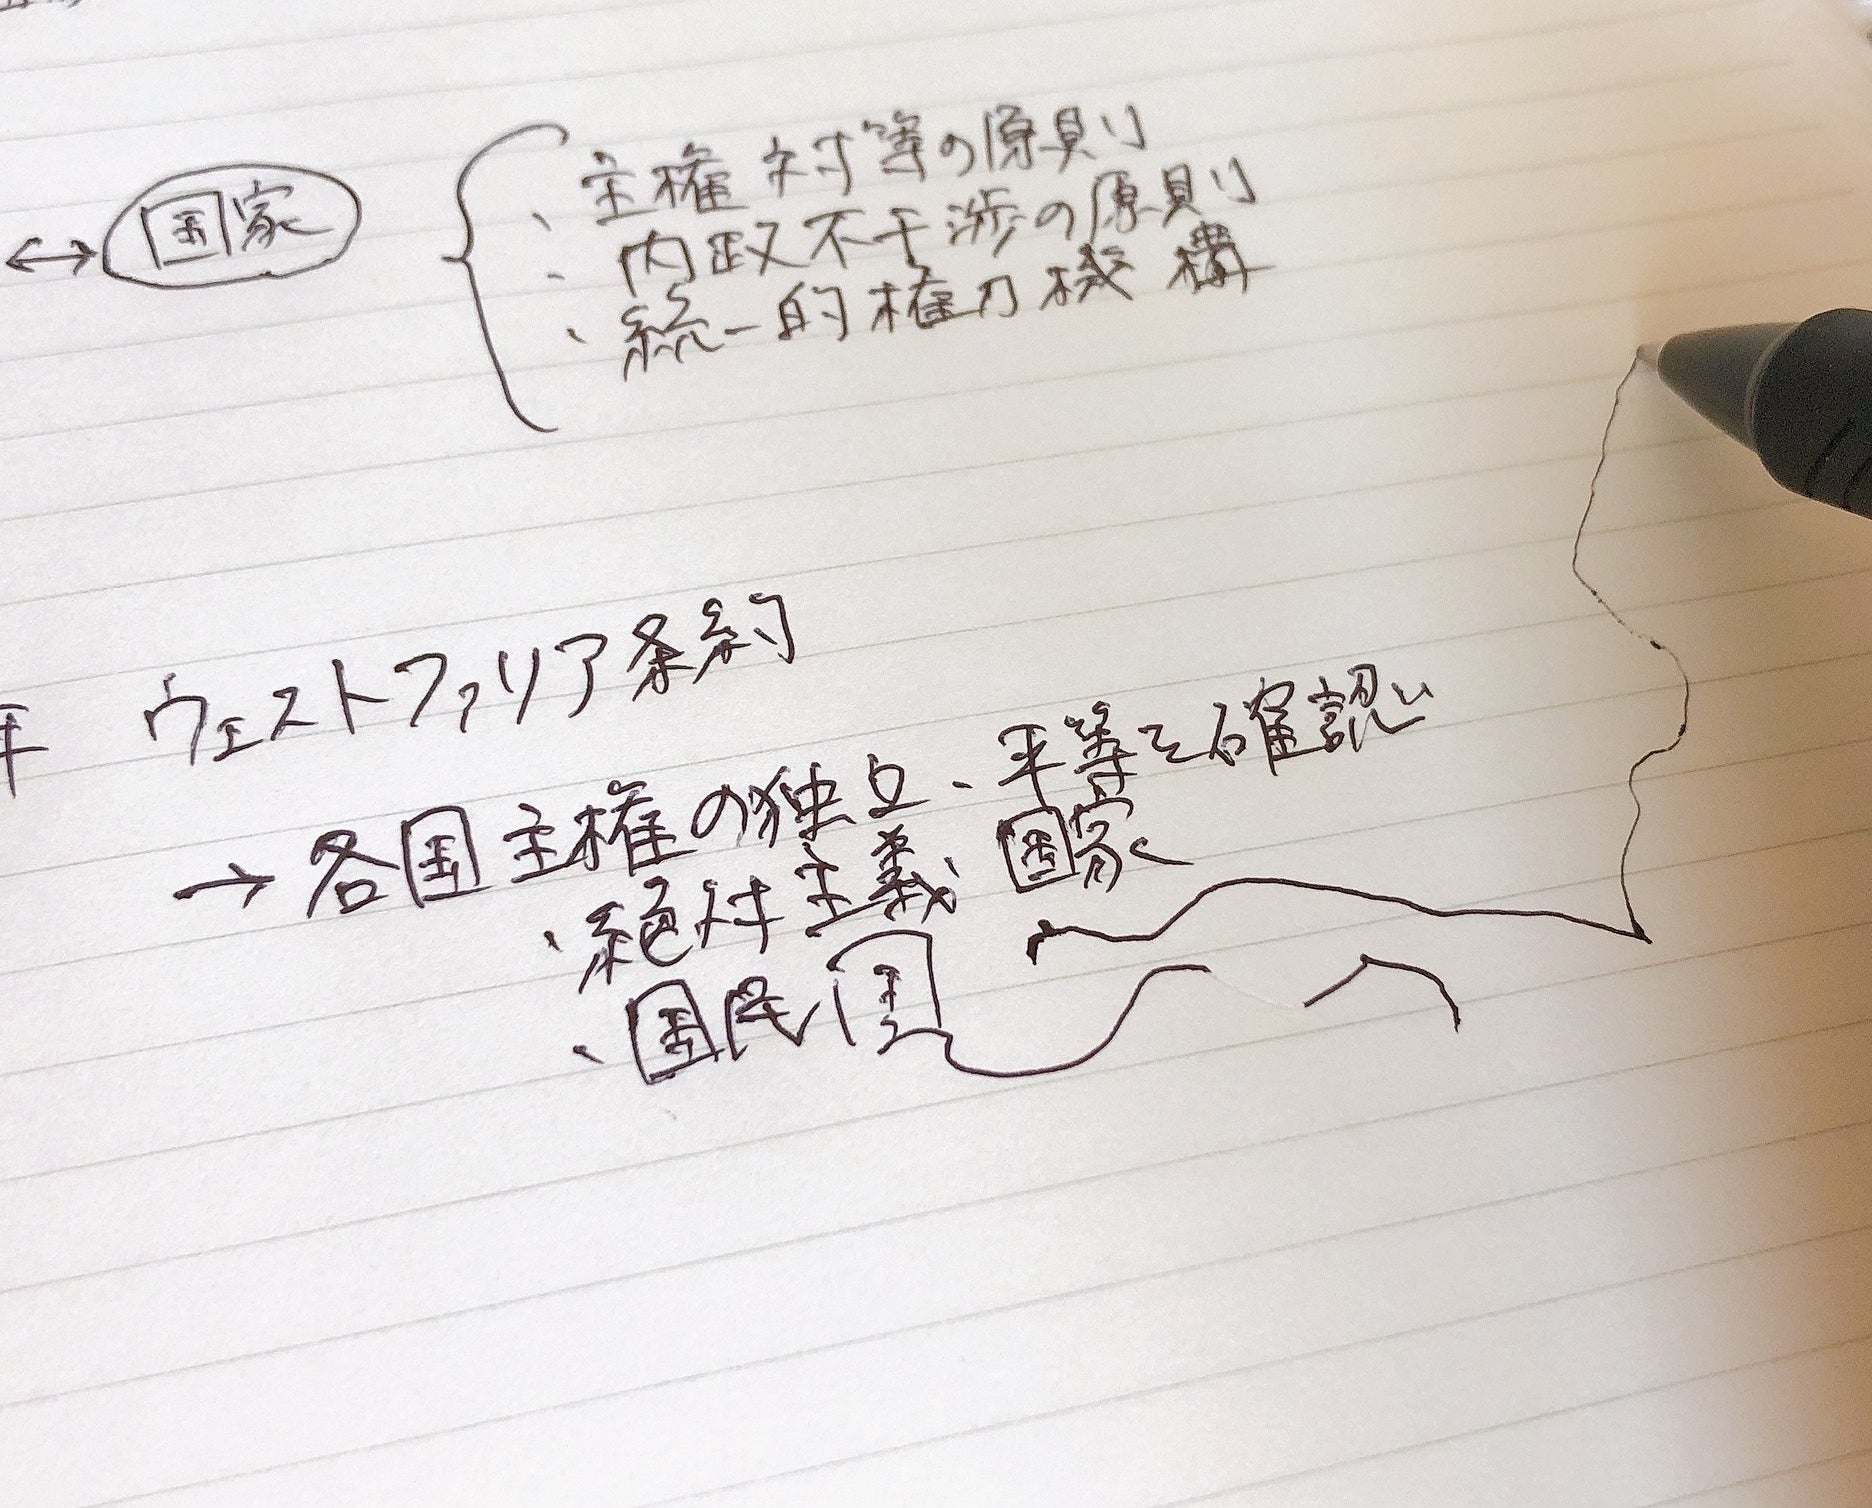 ↔ 国家
・主権対等の原則
・内政不干渉の原則
・統一的権力機構
年 ウェストファリア条約
→各国主権の独立、平等を確認
・絶対主義国家
・国民国